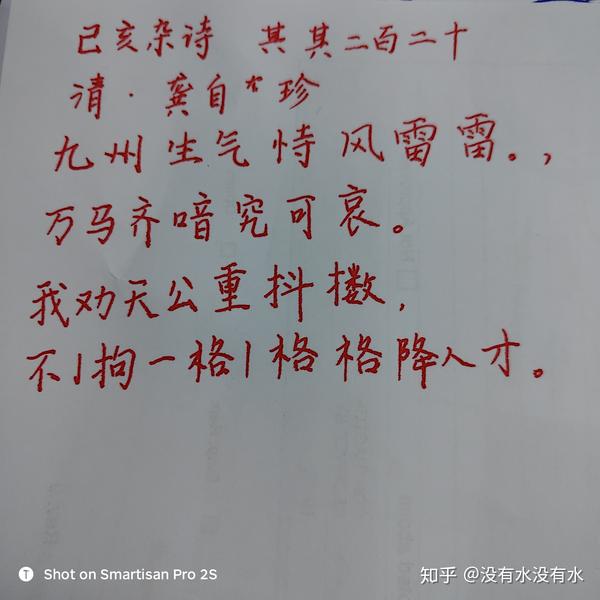 己亥杂诗 其其二百二十
清·龚自珍
九州生气恃风雷雷。，
万马齐喑究可哀。
我劝天公重抖擞，
不拘一格格格降人才。
Shot on Smartisan Pro 2S
知乎 @没有水没有水